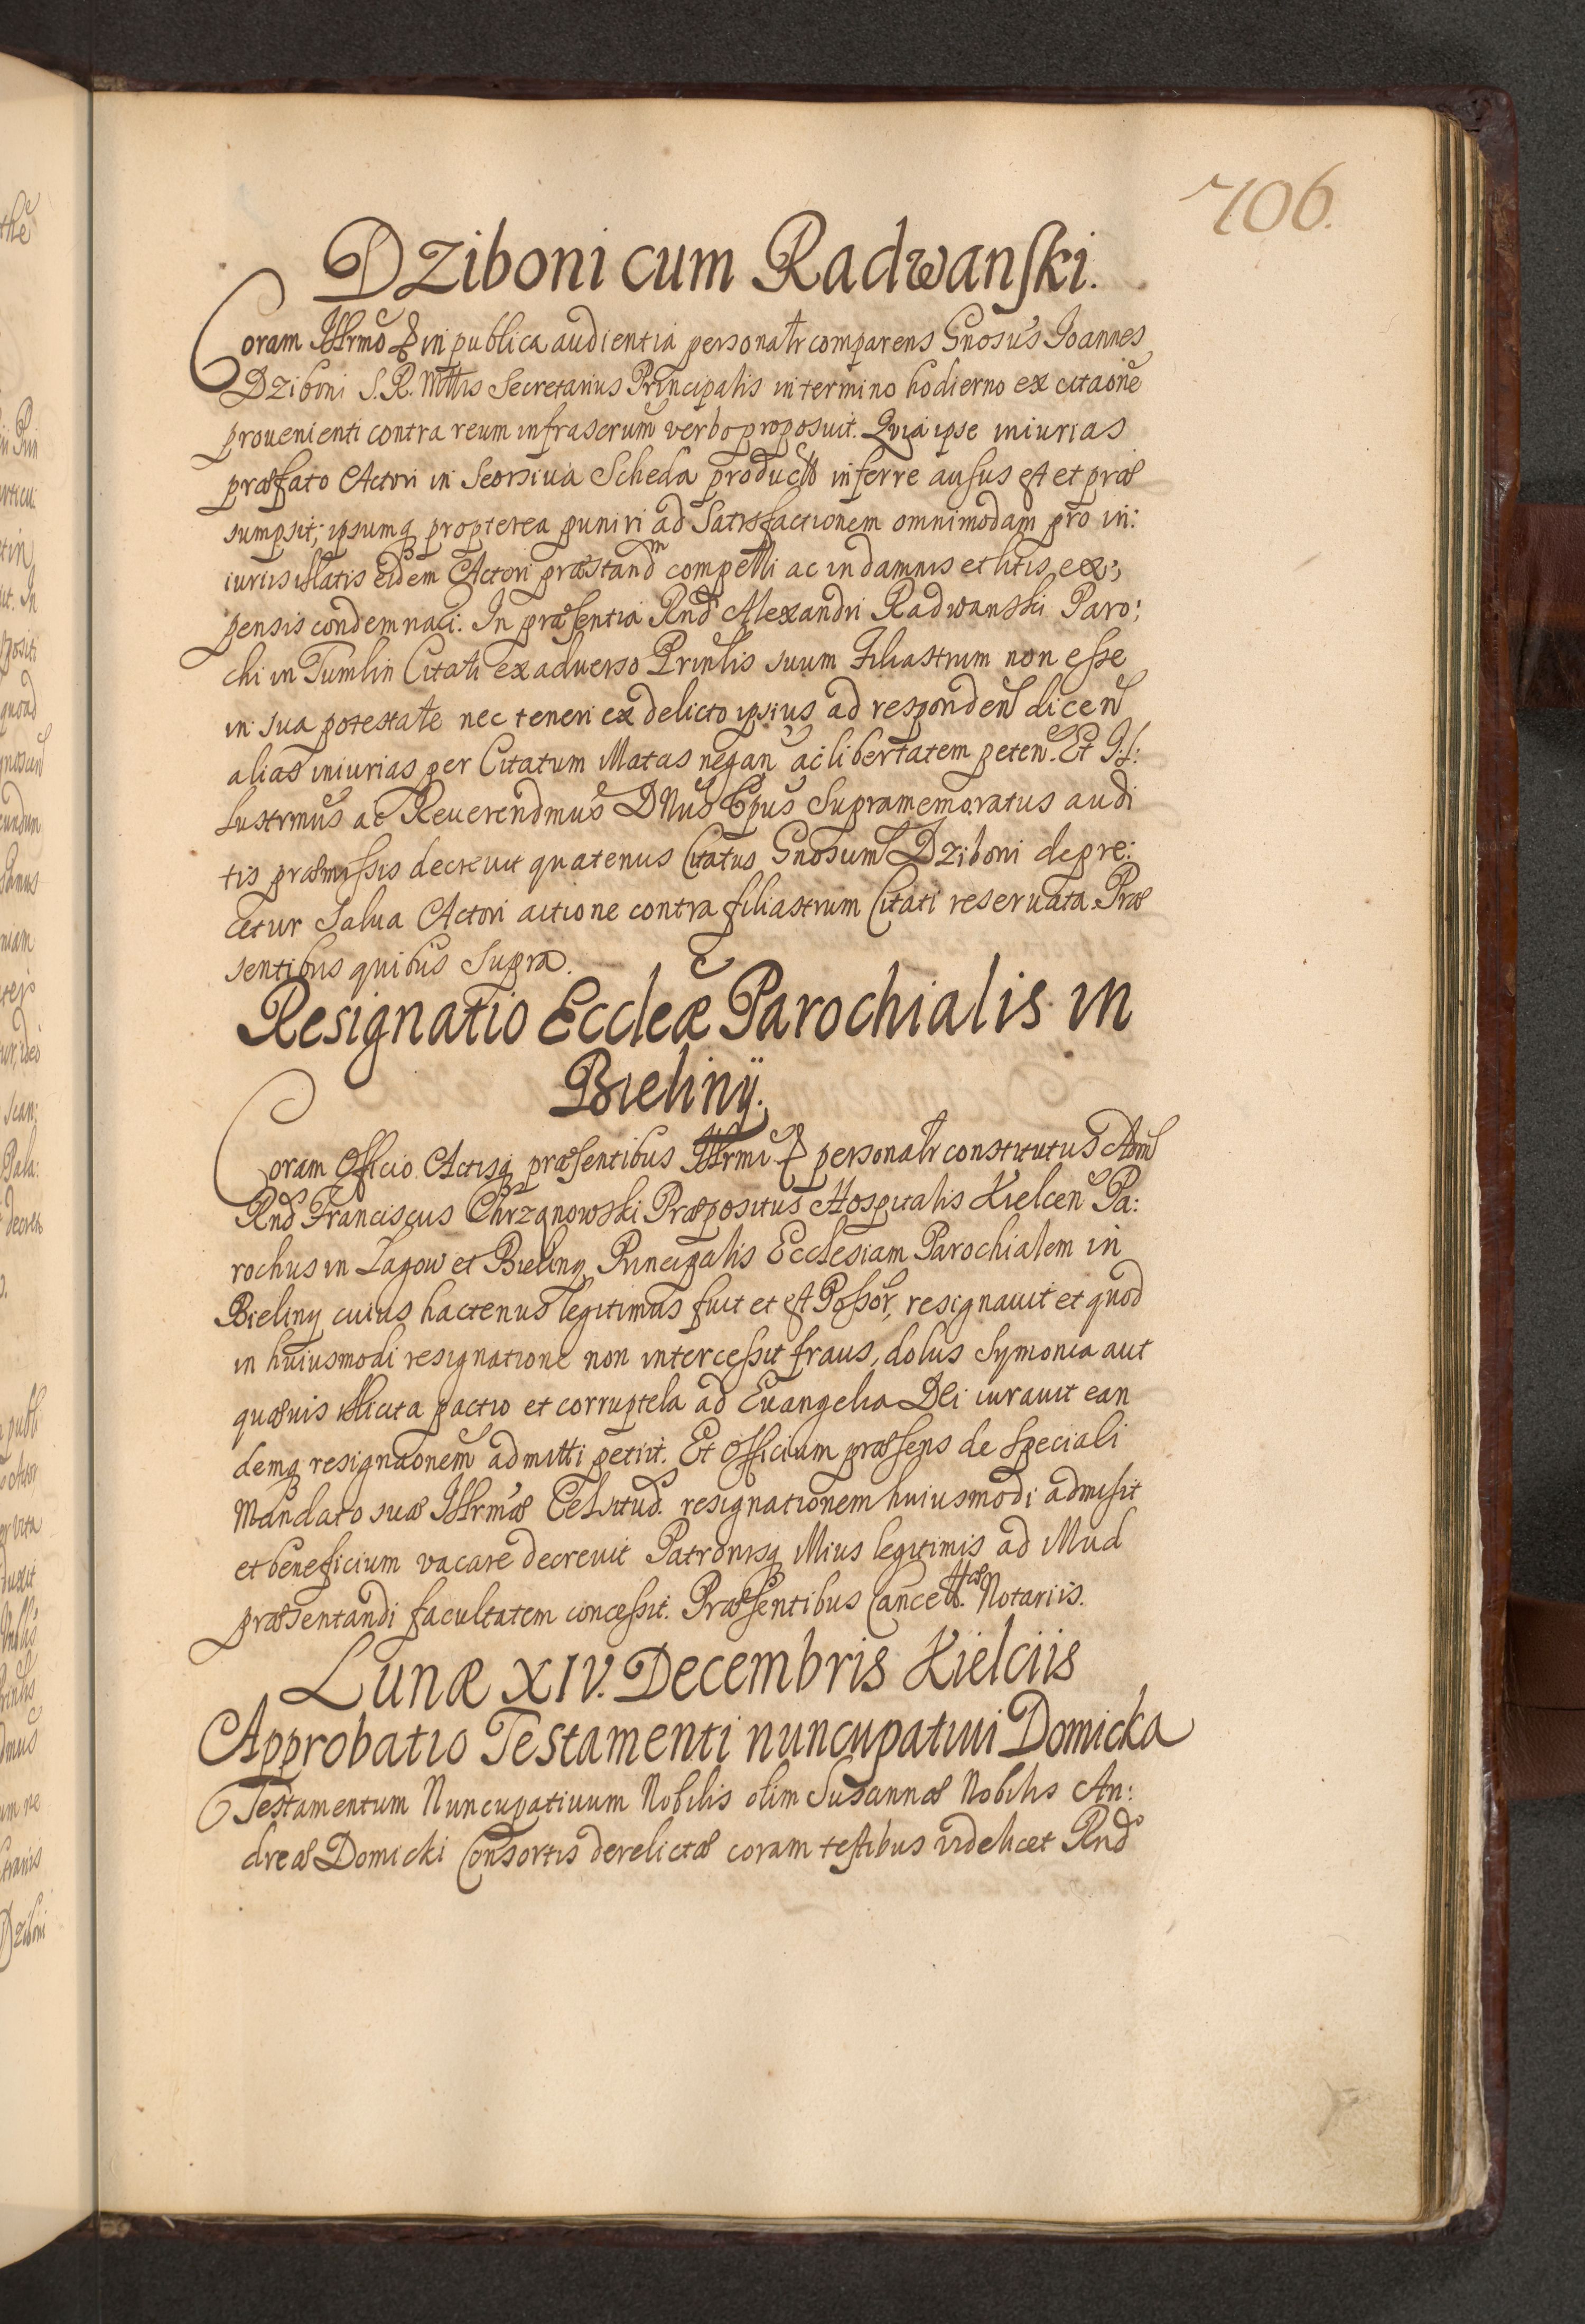 706.
Dziboni cum Radwanski.
Coram Illrmo & in publica audientia personalr comparens Gnosus Ioannes
Dziboni S. R. Mttis Secretarius Principalis in termino hodierno ex citaone
prouenienti contra reum infrascrum verbo proposuit. Quia ipse iniurias
præfato Actori in Seorsiua Scheda productas inferre ausus est et præ
sumpsit; ipsumq propterea puniri ad Satisfactionem omnimodam pro in:
iuriis illatis eidem Actori præstandm compelli ac in damnis et litis ex:
pensis condemnari. In præsentia Rnd Alexandri Radwanski Paro:
chi in Tumlin Citati ex aduerso Prinlis suum Filiastrum non esse
in sua potestate nec teneri ex delicto ipsius ad responden dicen
alias iniurias per Citatum illatas negan ac libertatem peten. Et Il:
lustrmus ac Reuerendmus DNus Epus Supramemoratus audi
tis præmissis decreuit quatenus Citatus Gnosum Dziboni depre:
cetur Salua Actori actione contra filiastrum Citati reseruata. Præ
sentibus quibus Supra.
Resignatio Eccleæ Parochialis in
Bieliny.
Coram Officio Actisq præsentibus Illrmi & personalr constitutus Adm
Rnd Franciscus Chrzanowski Præpositus Hospitalis Kielcen Pa:
rochus in Lagow et Bieliny Principalis Ecclesiam Parochialem in
Bieliny cuius hactenus legitimus fuit et est Possor, resignauit et quod
in huiusmodi resignatione non intercessit fraus, dolus Symonia aut
quæuis illicita pactio et corruptela ad Euangelia Dei iurauit ean
demq resignaonem admitti petiit. Et Officium præsens de Speciali
Mandato suæ Illrmæ Celsitud. resignationem huiusmodi admisit
et beneficium vacare decreuit Patronisq illius legitimis ad illud
præsentandi facultatem concessit. Præsentibus Cancell. Notariis.
Lunæ XIV. Decembris Kielciis
Approbatio Testamenti nuncupatiui Domicka
Testamentum Nuncupatiuum Nobilis olim Susannæ Nobilis An:
dreæ Domicki Consortis derelictæ coram testibus videlicet Rnd